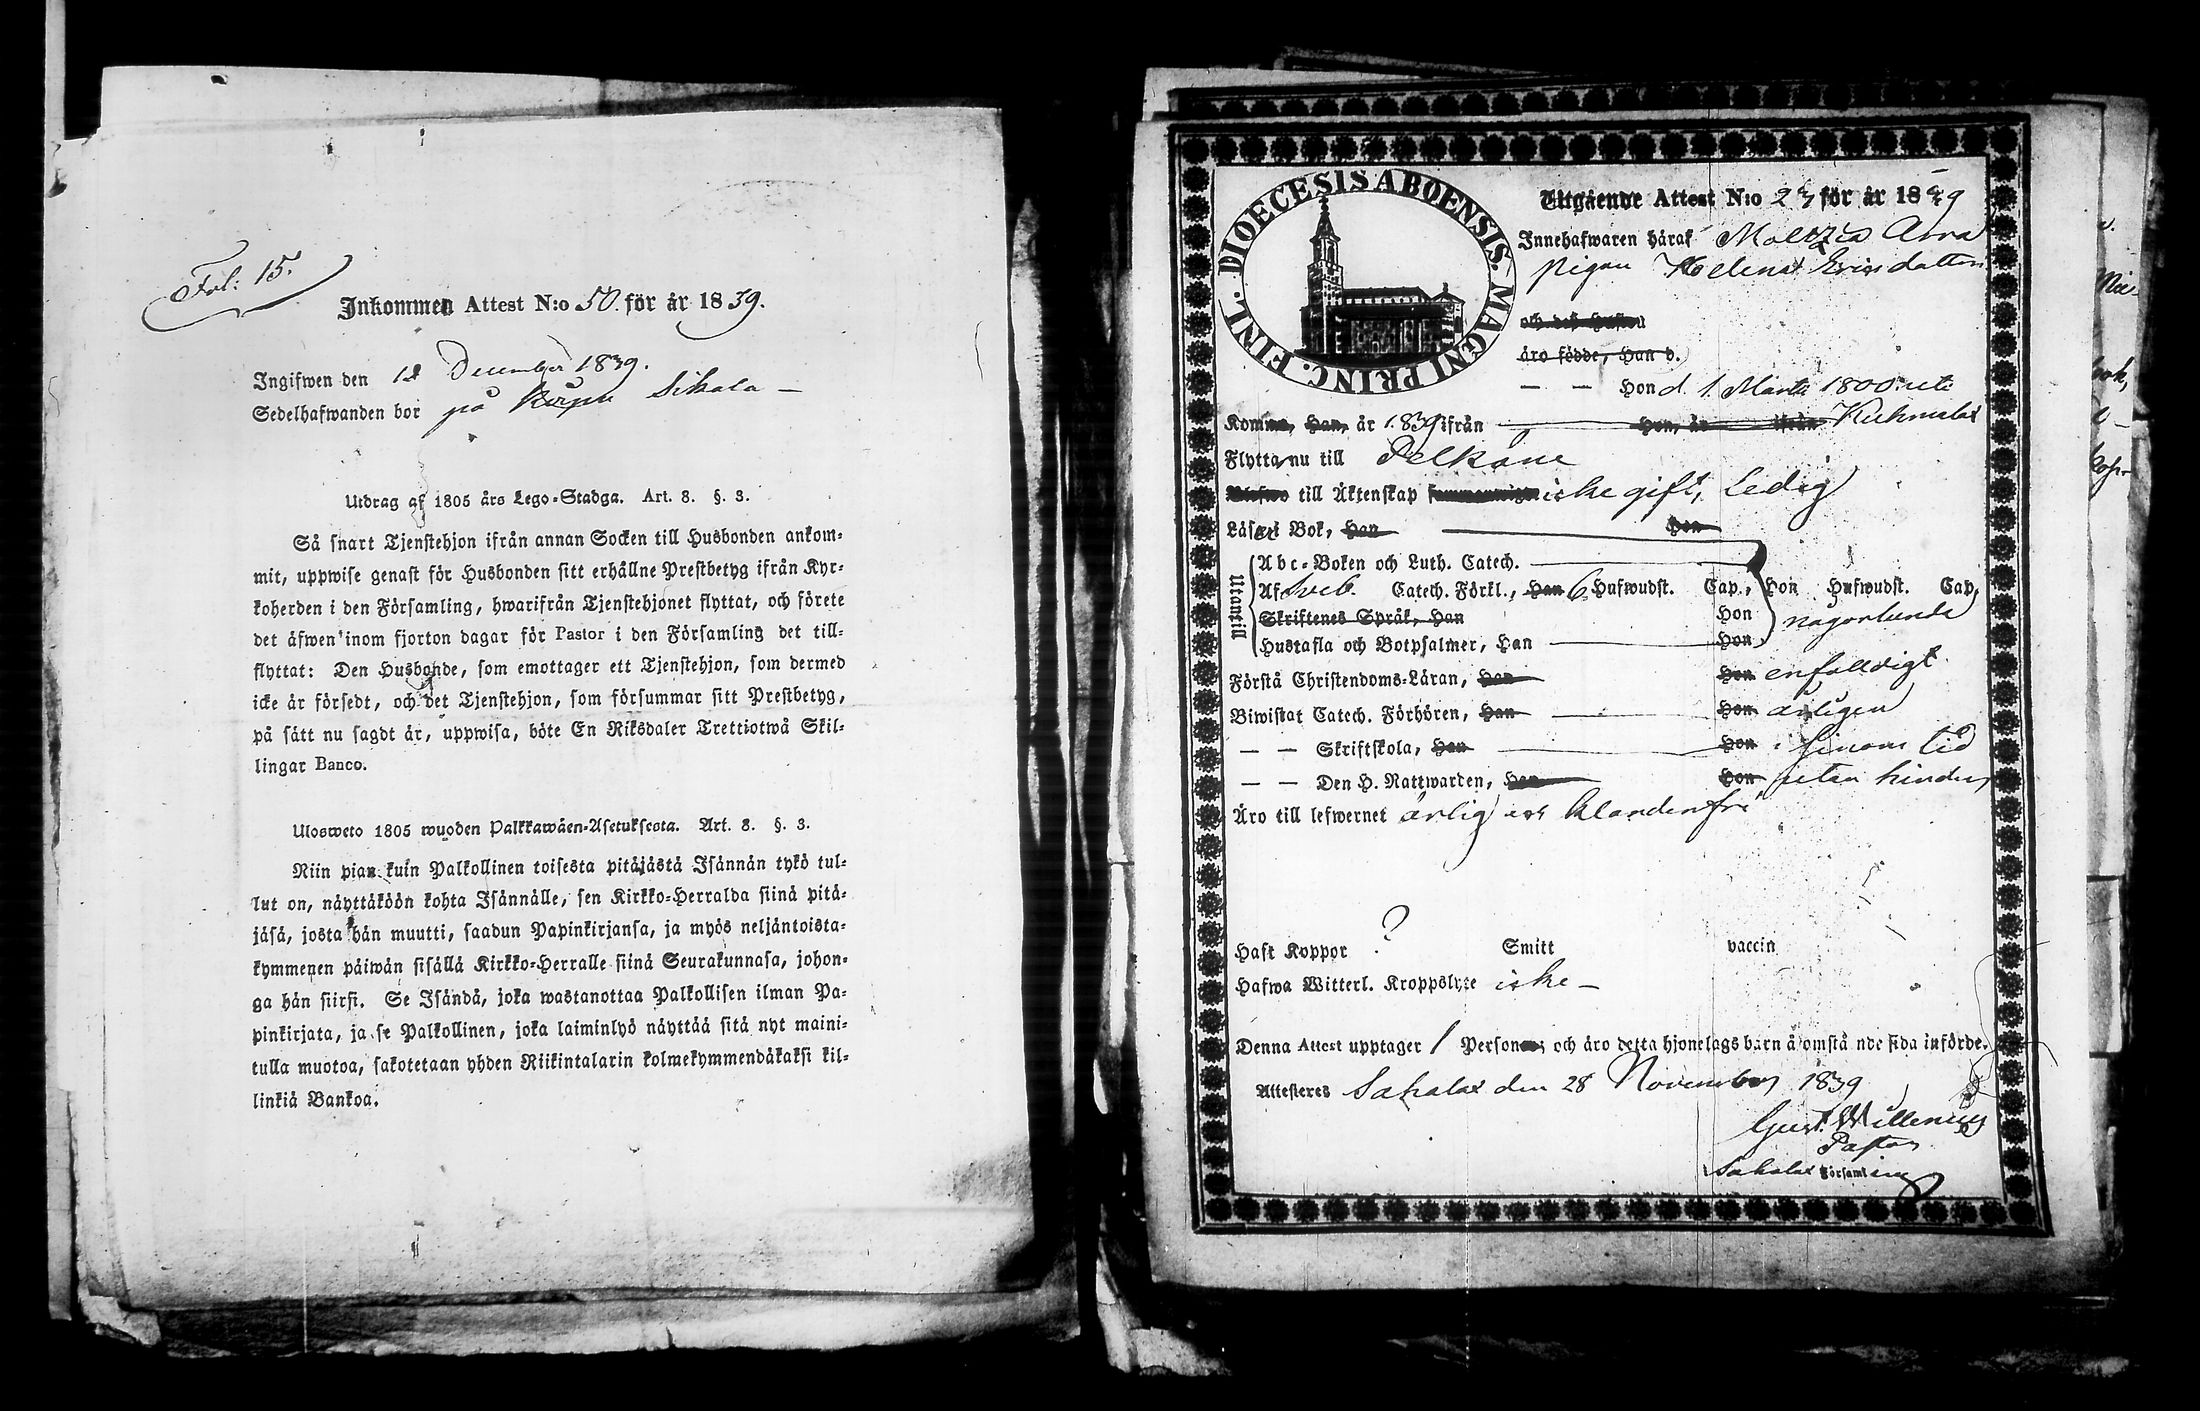 Fol: 15.
Inkommen Attest N:o 50. för år 1839.
Ingifwen den 12 December 1839.
Sedelhafwanden bor på Sikala —
Utdrag af 1805 års Lego-Stadga. Art. 8. §. 3.
Så snart Tjenstehjon ifrån annan Socken till Husbonden ankom-
mit, uppwise genast för Husbonden sitt erhållne Prestbetyg ifrån Kyr-
koherden i den Församling, hwarifrån Tjenstehjonet flyttat, och förete
det äfwen inom fjorton dagar för Pastor i den Församling det till-
flyttat: Den Husbonde, som emottager ett Tjenstehjon, som dermed
icke är försedt, och det Tjenstehjon, som försummar sitt Prestbetyg,
på sätt nu sagdt är, uppwisa, böte En Riksdaler Trettiotwå Skil-
lingar Banco.
Ulosweto 1805 wuoden Palkkawäen-Asetuksesta. Art. 8. §. 3.
Niin pian kuin Palkollinen toisesta pitäjästä Isännän tykö tul-
lut on, näyttäköön kohta Isännälle, sen Kirkko-Herralda siinä pitä-
jäsä, josta hän muutti, saadun Papinkirjansa, ja myös neljäntoista-
kymmenen päiwän sisällä Kirkko-Herralle siinä Seurakunnasa, johon-
ga hän siirsi. Se Isändä, joka wastanottaa Palkollisen ilman Pa-
pinkirjata, ja se Palkollinen, joka laiminlyö näyttää sitä nyt maini-
tulla muotoa, sakotetaan yhden Riikintalarin kolmekymmendäkaksi kil-
linkiä Bankoa.
DIOECESIS ABOENSIS. MAGNI PRINC. FINL.
Utgående Attest N:o 23 för år 1839
Innehafwaren häraf Anna
pigan Helena Ericsdotter
och deß hustru
äro födde, Han d.
— — Hon d. 1 Marti 1800. uti
Komne, Han, år 1839 ifrån Hon, år ifrån Kuhmalax
Flytta nu till Pelkäne
till Äktenskap icke gift, Ledig
Läser i Bok, Han Hon
Utantill
Abc-Boken och Luth. Catech.
Af Sveb. Catech. Förkl., Han 6 Hufwudst. Cap., Hon Hufwudst. Cap,
Skriftenes Språk, Han Hon någorlunda
Hustafla och Botpsalmer, Han Hon
Förstå Christendoms-Läran, Han Hon enfalldigt
Biwistat Catech. Förhören, Han Hon årligen
— — Skriftskola, Han Hon i sinom tid
— — Den H. Nattwarden, Han Hon utan hinder
Äro till lefwernet ärlig och klanderfri
Haft Koppor ? Smitt vaccin
Hafwa Witterl. Kroppslyte icke —
Denna Attest upptager 1 Personer och äro detta hjonelags barn å omstående sida införde.
Attesteras Sahalax den 28 November 1839
Gust. Willenius
Pastor
Sahalax Församling